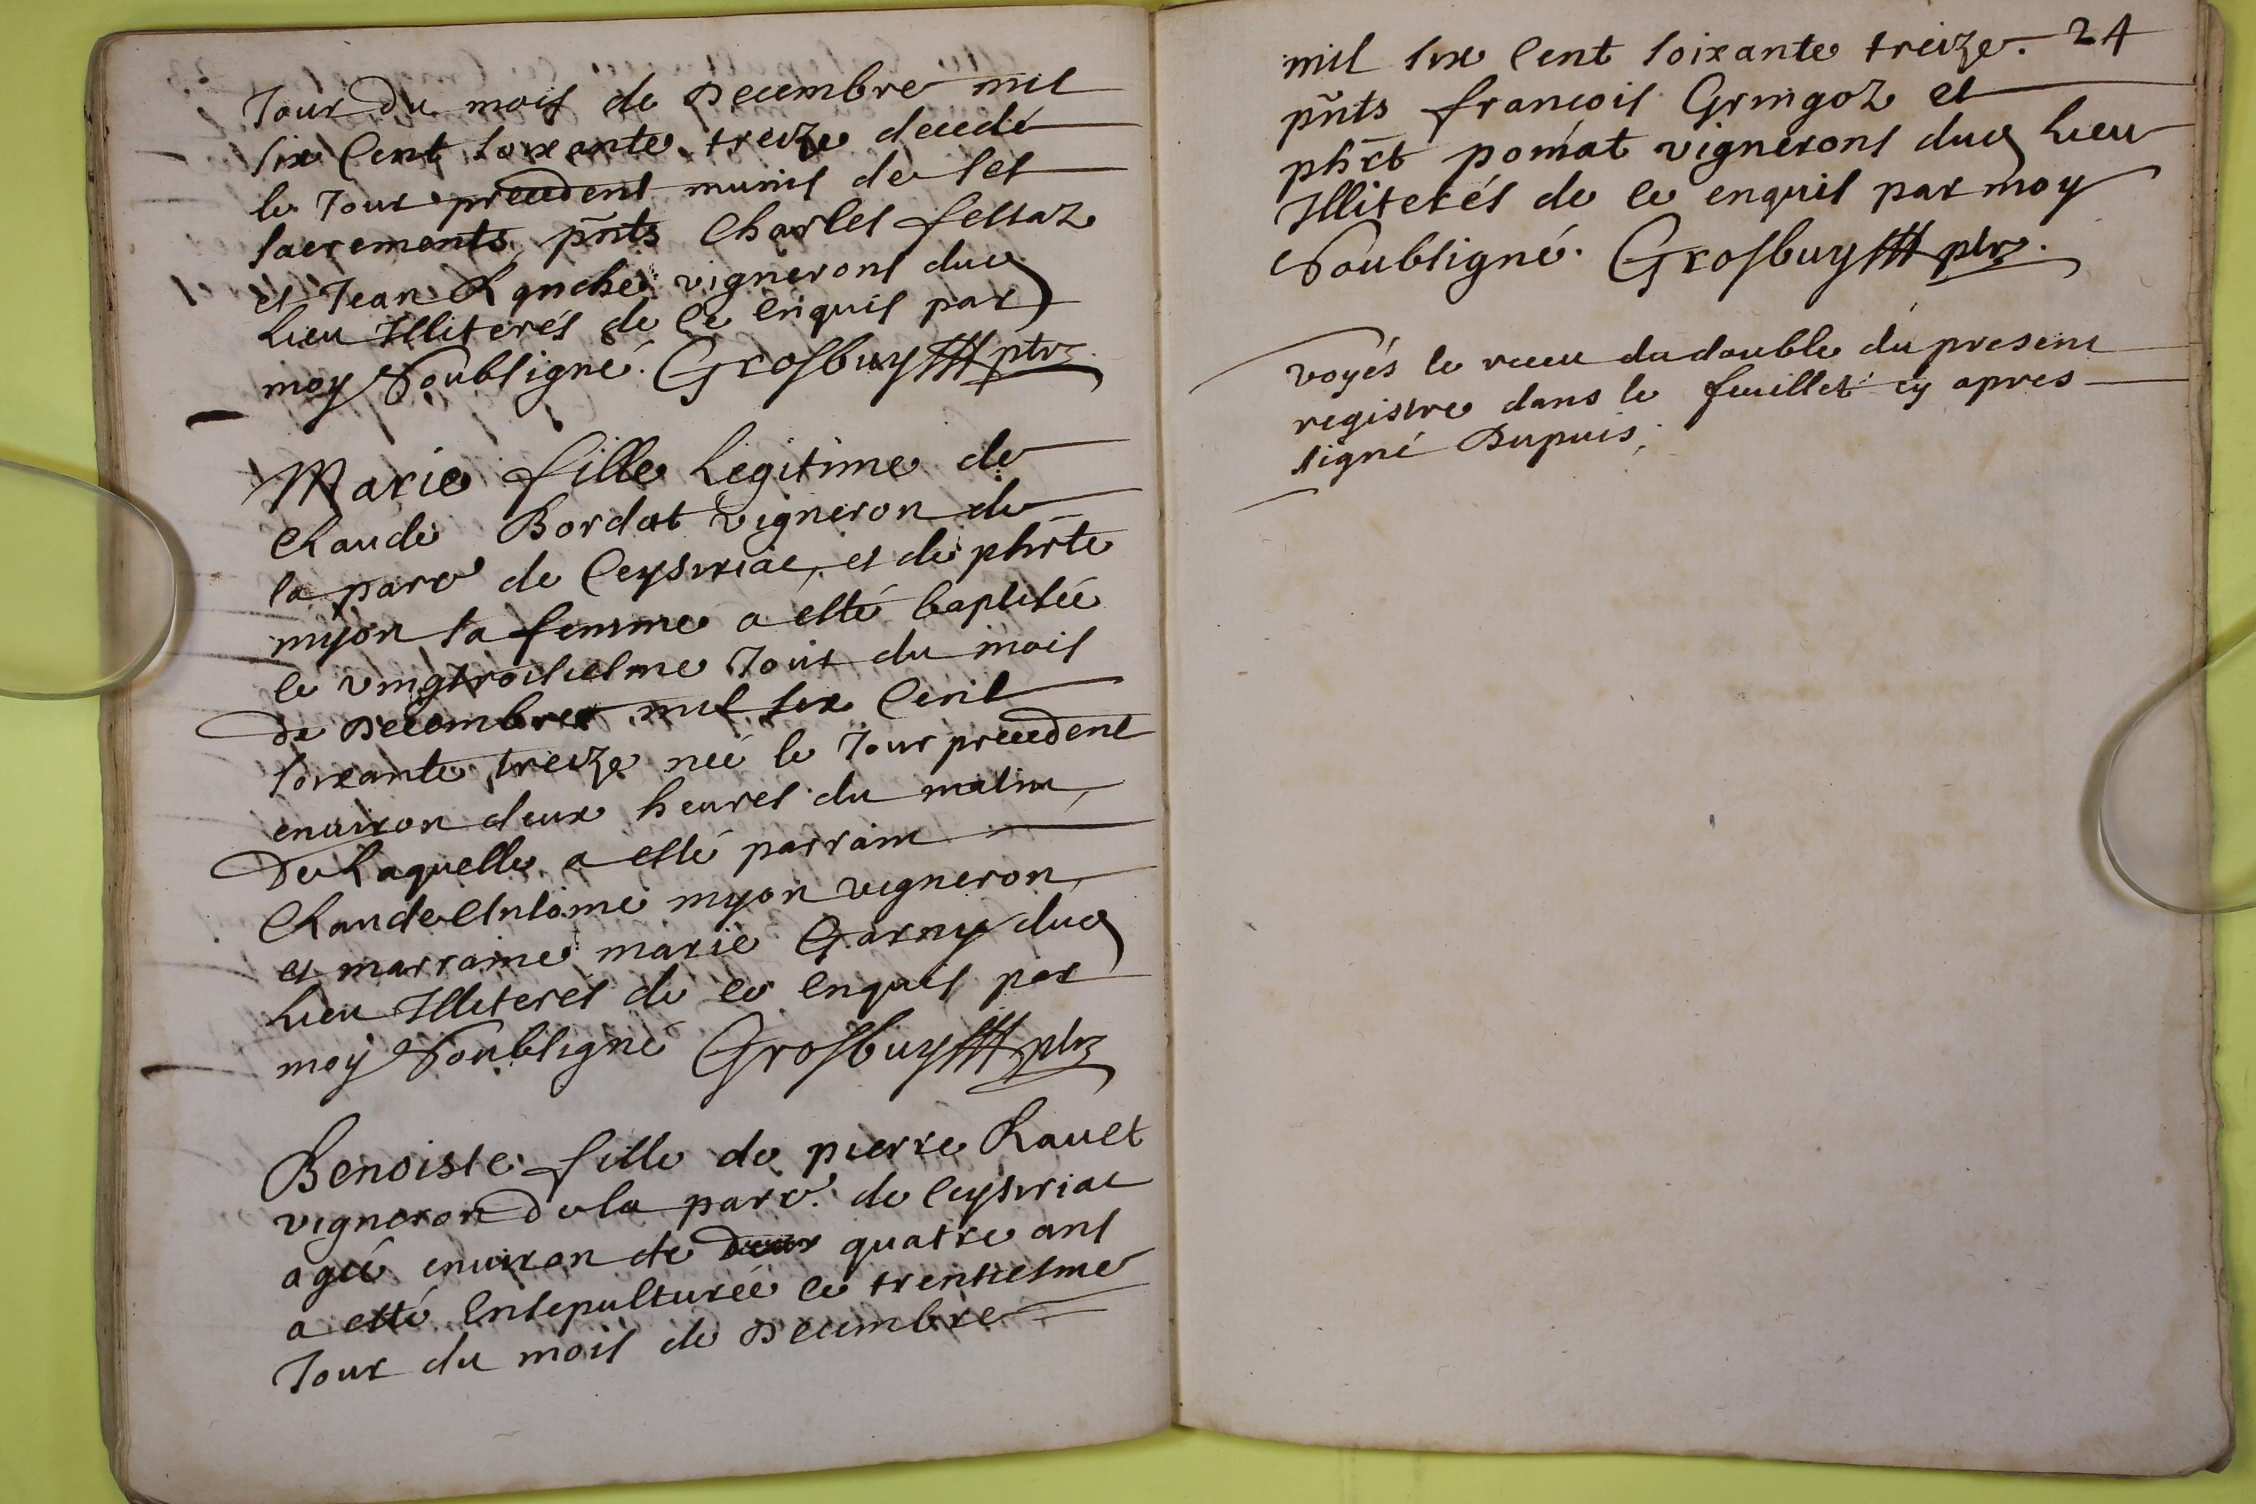 Jour Du mois de Decembre mil
six Cent soixante treize decedé
le Jour precedent munis de ses
sacrements, pñts Charles fettaz
et Jean vignerons duq
Lieu Illiterés de Ce enquis par
moy Soubsigné. Grosbuy ptr
Marie fille Legitime de
Claude Bordat vigneron de
la parr de Ceysiriac, et de phrte
myon sa femme a esté baptisée
le vingtroisiesme Jour du mois
de Decembre mil six Cent
soixante treize née le Jour precedent
environ deux heures du matin,
De Laquelle a esté parrain
Claude Antoine myon vigneron,
et marraine marie Garny duq
Lieu Illiterés de ce enquis par
moy Soubsigné Grosbuy ptr
Benoiste fille de pierre Ravet
vigneron De la parr. de Ceysiriac
agée environ de quatre ans
a esté Ensepulturée le trentiesme
Jour du mois de Decembre
mil six Cent soixante treize. 24
pñts francois Gringoz et
phrt pomát vignerons duq Lieu
Illiterés de ce enquis par moy
Soubsigné. Grosbuy ptr.
voyés le receu du double du present
registre dans le feuillet cy apres
signé Dupuis,